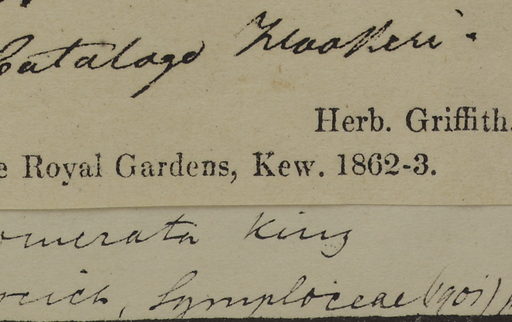 Catalogo Hookeri.
Herb. Griffith.
e Royal Gardens, Kew. 1862-3.
omerata King
Symplocaceae (1901)